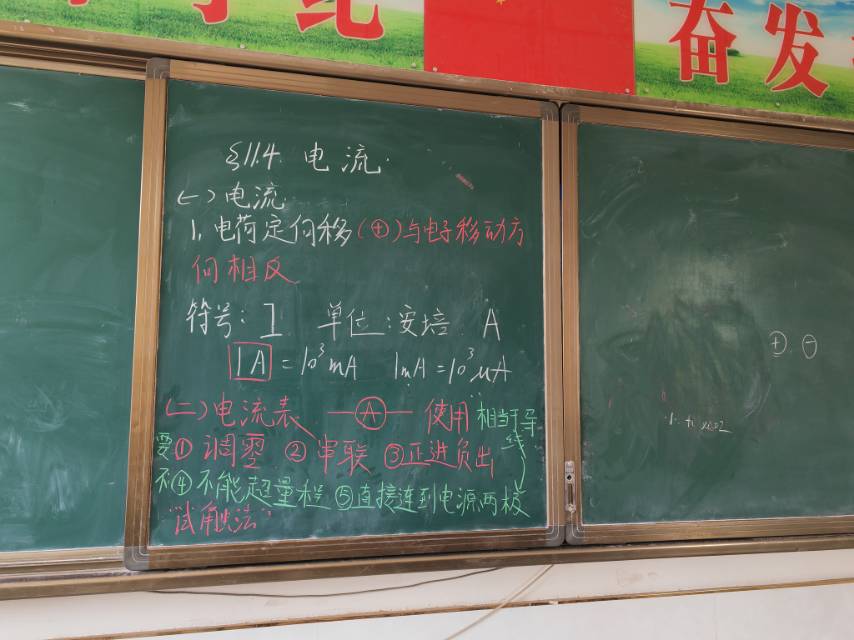 纪
奋发
§11.4. 电流.
(一) 电流.
1. 电荷定向移 (⊕) 与电子移动方
向相反
符号: I 单位: 安培 A
1A = 10³mA 1mA = 10³μA
(二) 电流表 —Ⓐ— 使用 相当于导
线
要① 调零 ② 串联 ③正进负出
不④不能超量程 ⑤直接连到电源两极
"试触法"
⊕ ⊖